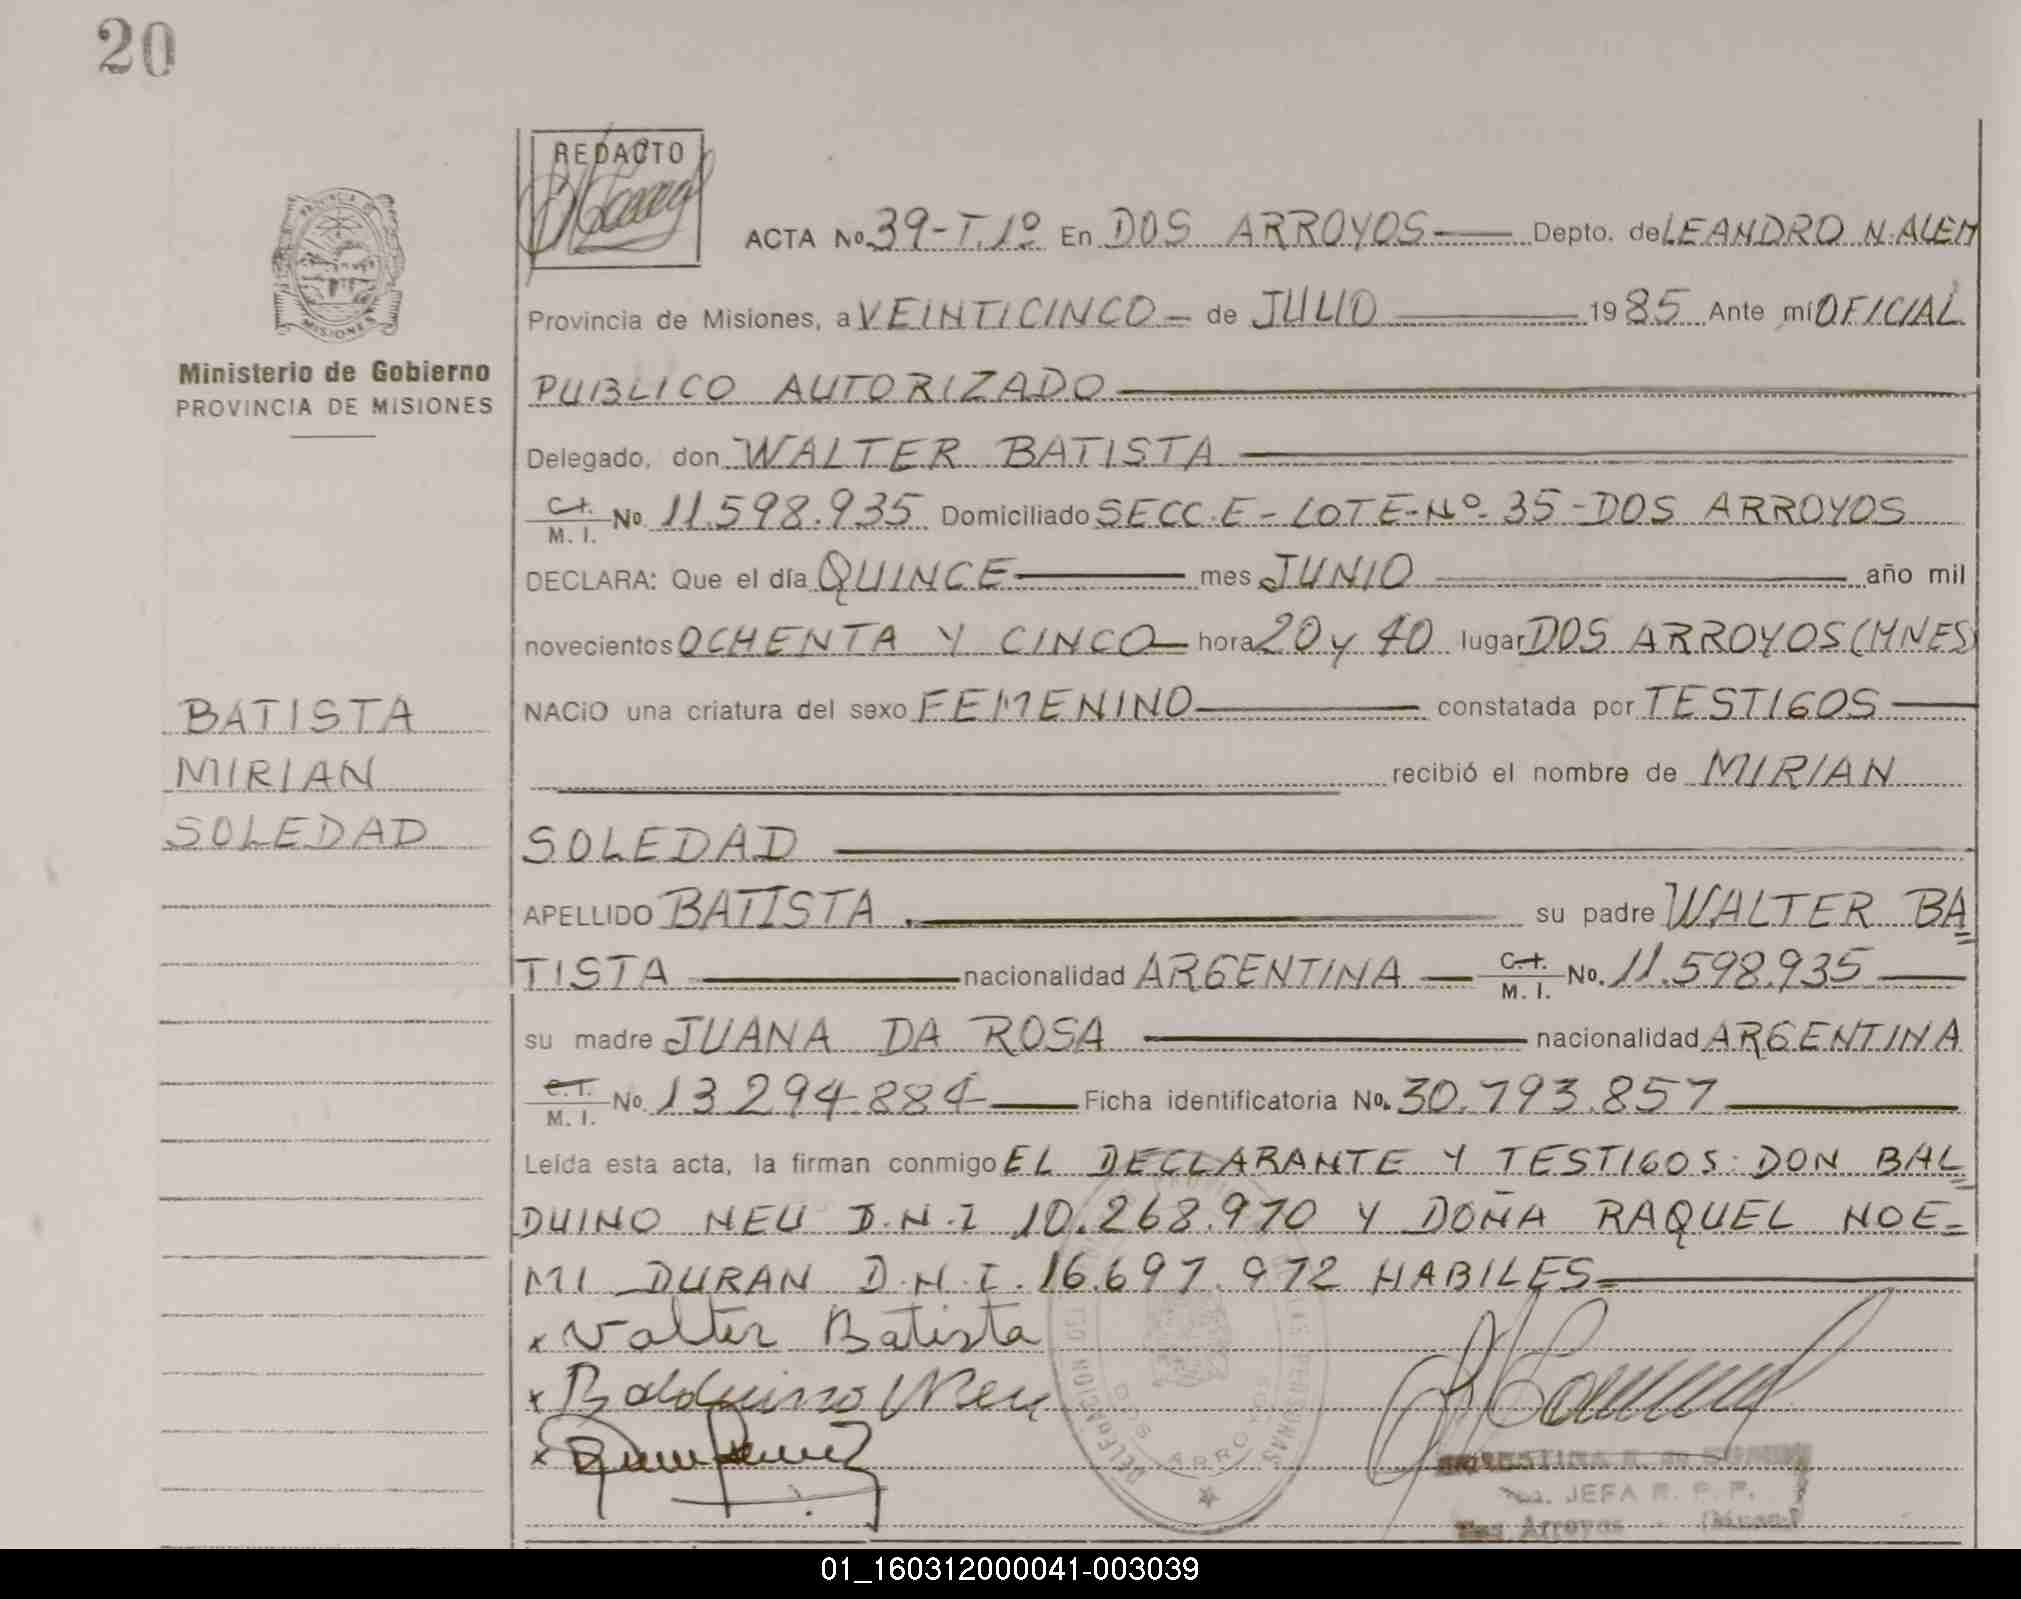 20
REDACTO
ACTA No. 39-T.1º En DOS ARROYOS Depto. de LEANDRO N. ALEM
Provincia de Misiones, a VEINTICINCO de JULIO 1985 Ante mí OFICIAL
Ministerio de Gobierno
PROVINCIA DE MISIONES
PUBLICO AUTORIZADO
Delegado, don WALTER BATISTA
C.I. / M. I. No. 11.598.935 Domiciliado SECC.E - LOTE-Nº 35 - DOS ARROYOS
DECLARA: Que el día QUINCE mes JUNIO año mil
novecientos OCHENTA Y CINCO hora 20 y 40 lugar DOS ARROYOS (MNES)
NACiO una criatura del sexo FEMENINO constatada por TESTIGOS
recibió el nombre de MIRIAN
SOLEDAD
BATISTA
MIRIAN
SOLEDAD
APELLIDO BATISTA su padre WALTER BA
TISTA nacionalidad ARGENTINA C.I. / M. I. No. 11.598.935
su madre JUANA DA ROSA nacionalidad ARGENTINA
C.I. / M. I. No. 13.294.884 Ficha identificatoria No. 30.793.857
Leída esta acta, la firman conmigo EL DECLARANTE Y TESTIGOS: DON BAL
DUINO NEU D.N.I 10.268.970 Y DOÑA RAQUEL NOE=
MI DURAN D.N.I. 16.697.972 HABILES=
x Valter Batista
x Balduino Neu
x
DELEGACION DEL
PERSONAS
DOS ARROYOS
JEFA R. P. P.
Dos Arroyos
01_160312000041-003039